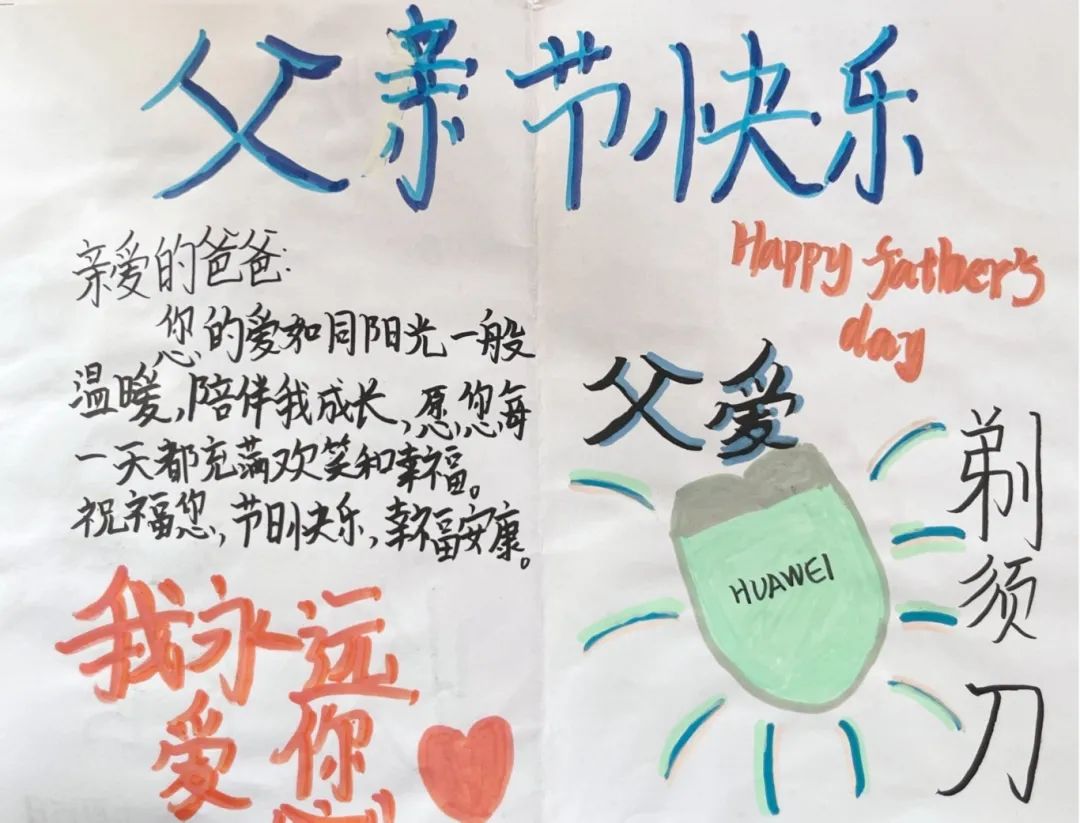 父亲节快乐
亲爱的爸爸:
您的爱如同阳光一般
温暖,陪伴我成长,愿您每
一天都充满欢笑和幸福。
祝福您,节日快乐,幸福安康。
我永远
爱你
Happy father's
day
父爱
HUAWEI
剃须刀